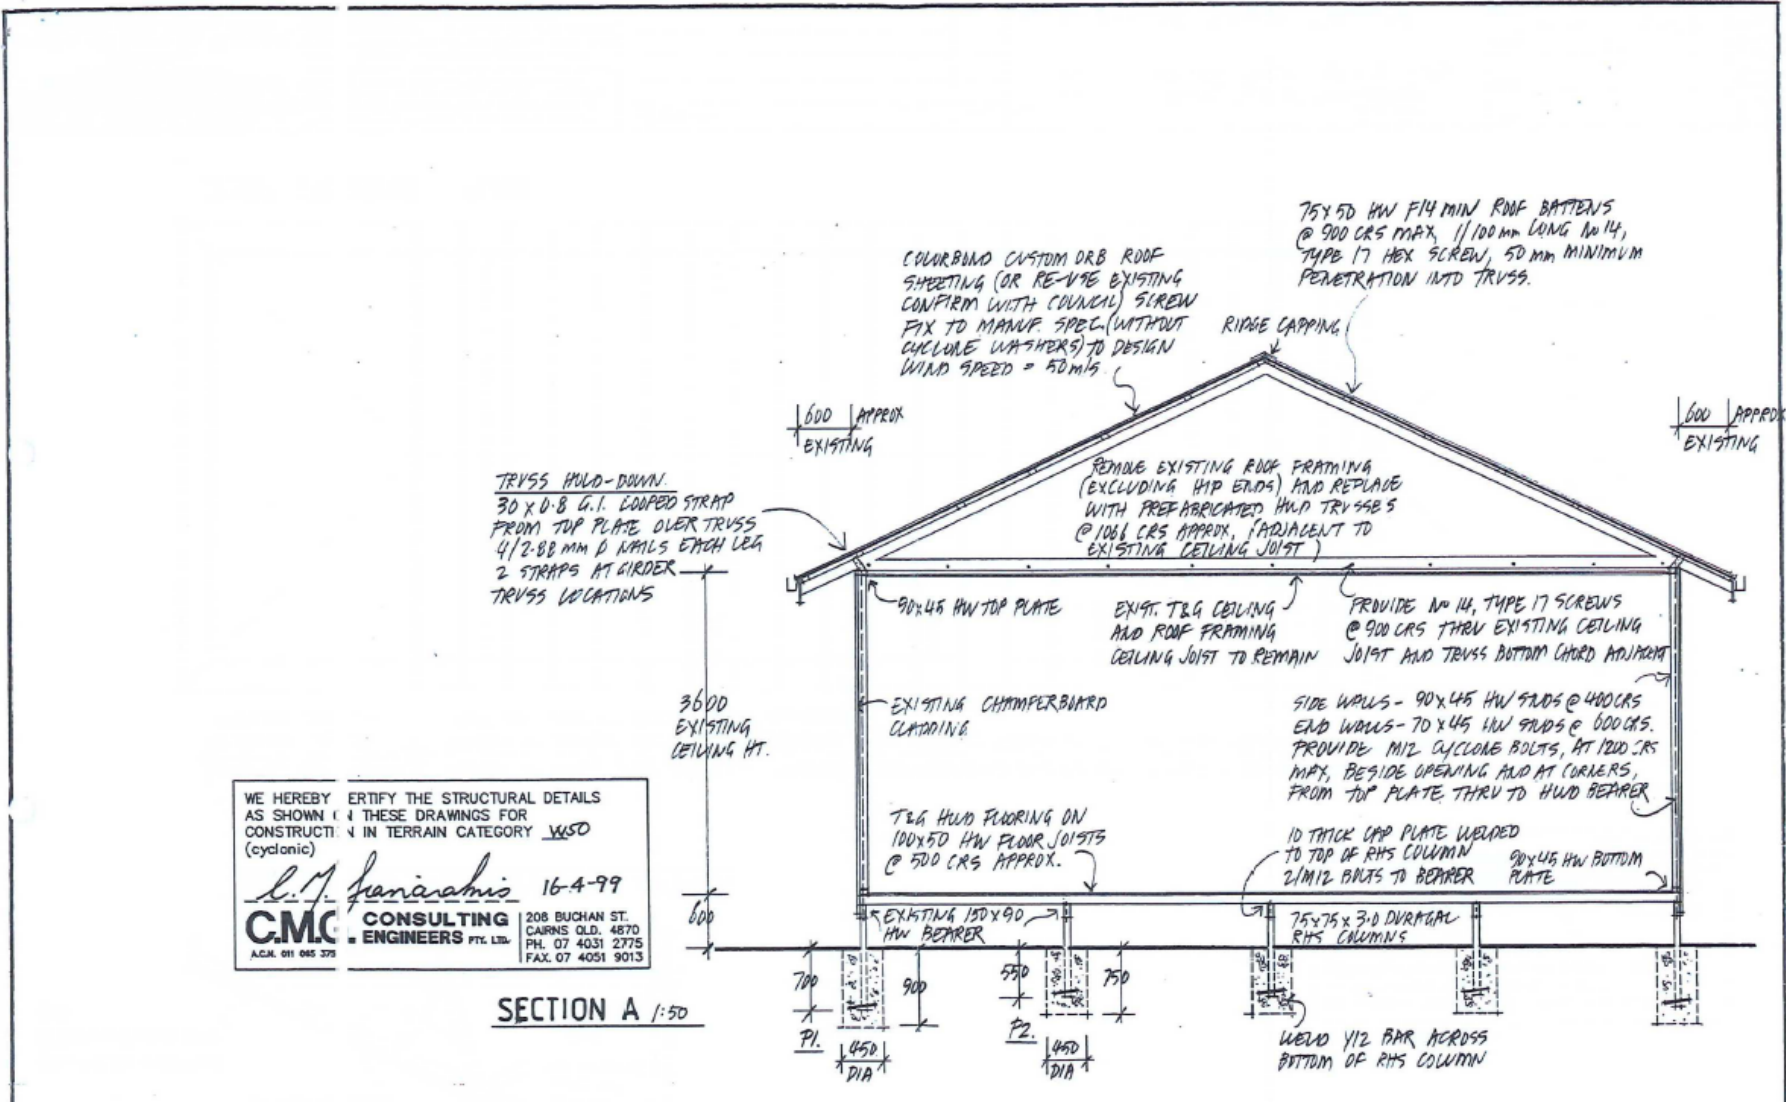 75x50 HW F14 MIN ROOF BATTENS
@ 900 CRS MAX, 1/100mm LONG No 14,
TYPE 17 HEX SCREW, 50mm MINIMUM
PENETRATION INTO TRUSS.
COLORBOND CUSTOM ORB ROOF
SHEETING (OR RE-USE EXISTING
CONFIRM WITH COUNCIL) SCREW
FIX TO MANUF. SPEC. (WITHOUT
CYCLONE WASHERS) TO DESIGN
WIND SPEED = 50m/s
RIDGE CAPPING
600 APPROX
EXISTING
600 APPROX
EXISTING
TRUSS HOLD-DOWN.
30 x 0.8 G.I. LOOPED STRAP
FROM TOP PLATE OVER TRUSS
4/2.88 mm Ø NAILS EACH LEG
2 STRAPS AT GIRDER
TRUSS LOCATIONS
REMOVE EXISTING ROOF FRAMING
(EXCLUDING HIP ENDS) AND REPLACE
WITH PREFABRICATED HWD TRUSSES
@ 1066 CRS APPROX, (ADJACENT TO
EXISTING CEILING JOIST)
90x45 HW TOP PLATE
EXIST. T&G CEILING
AND ROOF FRAMING
CEILING JOIST TO REMAIN
PROVIDE No 14, TYPE 17 SCREWS
@ 900 CRS THRU EXISTING CEILING
JOIST AND TRUSS BOTTOM CHORD ADJACENT
3600
EXISTING
CEILING HT.
EXISTING CHAMFERBOARD
CLADDING
SIDE WALLS - 90x45 HW STUDS @ 400 CRS
END WALLS - 70x45 HW STUDS @ 600 CRS.
PROVIDE M12 CYCLONE BOLTS, AT 1200 CRS
MAX, BESIDE OPENING AND AT CORNERS,
FROM TOP PLATE THRU TO HWD BEARER
T&G HWD FLOORING ON
100x50 HW FLOOR JOISTS
@ 500 CRS APPROX.
10 THICK CAP PLATE WELDED
TO TOP OF RHS COLUMN
2/M12 BOLTS TO BEARER
90x45 HW BOTTOM
PLATE
WE HEREBY ERTIFY THE STRUCTURAL DETAILS
AS SHOWN N THESE DRAWINGS FOR
CONSTRUCTI N IN TERRAIN CATEGORY W50
(cyclonic)
16-4-99
C.M.G. CONSULTING
ENGINEERS PTY. LTD.
A.C.N. 011 065 375
208 BUCHAN ST.
CAIRNS QLD. 4870
PH. 07 4031 2775
FAX. 07 4051 9013
600
EXISTING 150x90
HW BEARER
75x75x3.0 DURAGAL
RHS COLUMNS
700
900
550
750
P1.
450
DIA
P2.
450
DIA
WELD Y12 BAR ACROSS
BOTTOM OF RHS COLUMN
SECTION A 1:50